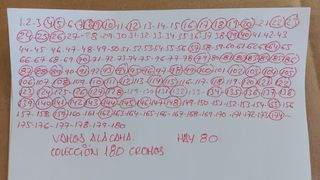 1-2-3-4-5-6-7-8-9-10-11-12-13-14-15-16-17-18-19-20-21-22-23
24-25-26-27-28-29-30-31-32-33-34-35-36-37-38-39-40-41-42-43
44-45-46-47-48-49-50-51-52-53-54-55-56-57-58-59-60-61-62-63-64-65
66-67-68-69-70-71-72-73-74-75-76-77-78-79-80-81-82-83-84-85-86
87-88-89-90-91-92-93-94-95-96-97-98-99-100-101-102-103-104-105
106-107-108-109-110-111-112-113-114-115-116-117-118-119-120-121-122
123-124-125-126-127-128-129-130-131-132-133-134-135-136-137-138
139-140-141-142-143-144-145-146-147-148-149-150-151-152-153-154-155-156
157-158-159-160-161-162-163-164-165-166-167-168-169-170-171-172-173-174
-175-176-177-178-179-180
VAMOS A LA CAMA HAY 80
COLECCIÓN 180 CROMOS